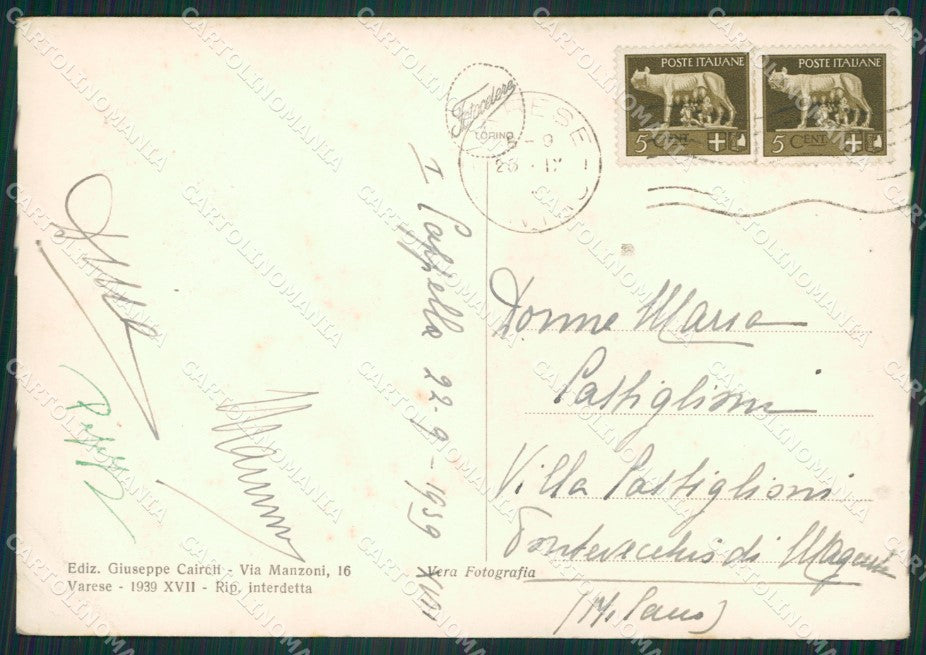 Fotocelere
TORINO
POSTE ITALIANE
5 CENT
POSTE ITALIANE
5 CENT
I Cappella 22-9-1939 XVII
Donna Maria
Castiglioni
Villa Castiglioni
Pontevecchio di Magenta
(Milano)
Ediz. Giuseppe Cairoli - Via Manzoni, 16
Varese - 1939 XVII - Rip. interdetta
Vera Fotografia
CARTOLINOMANIA